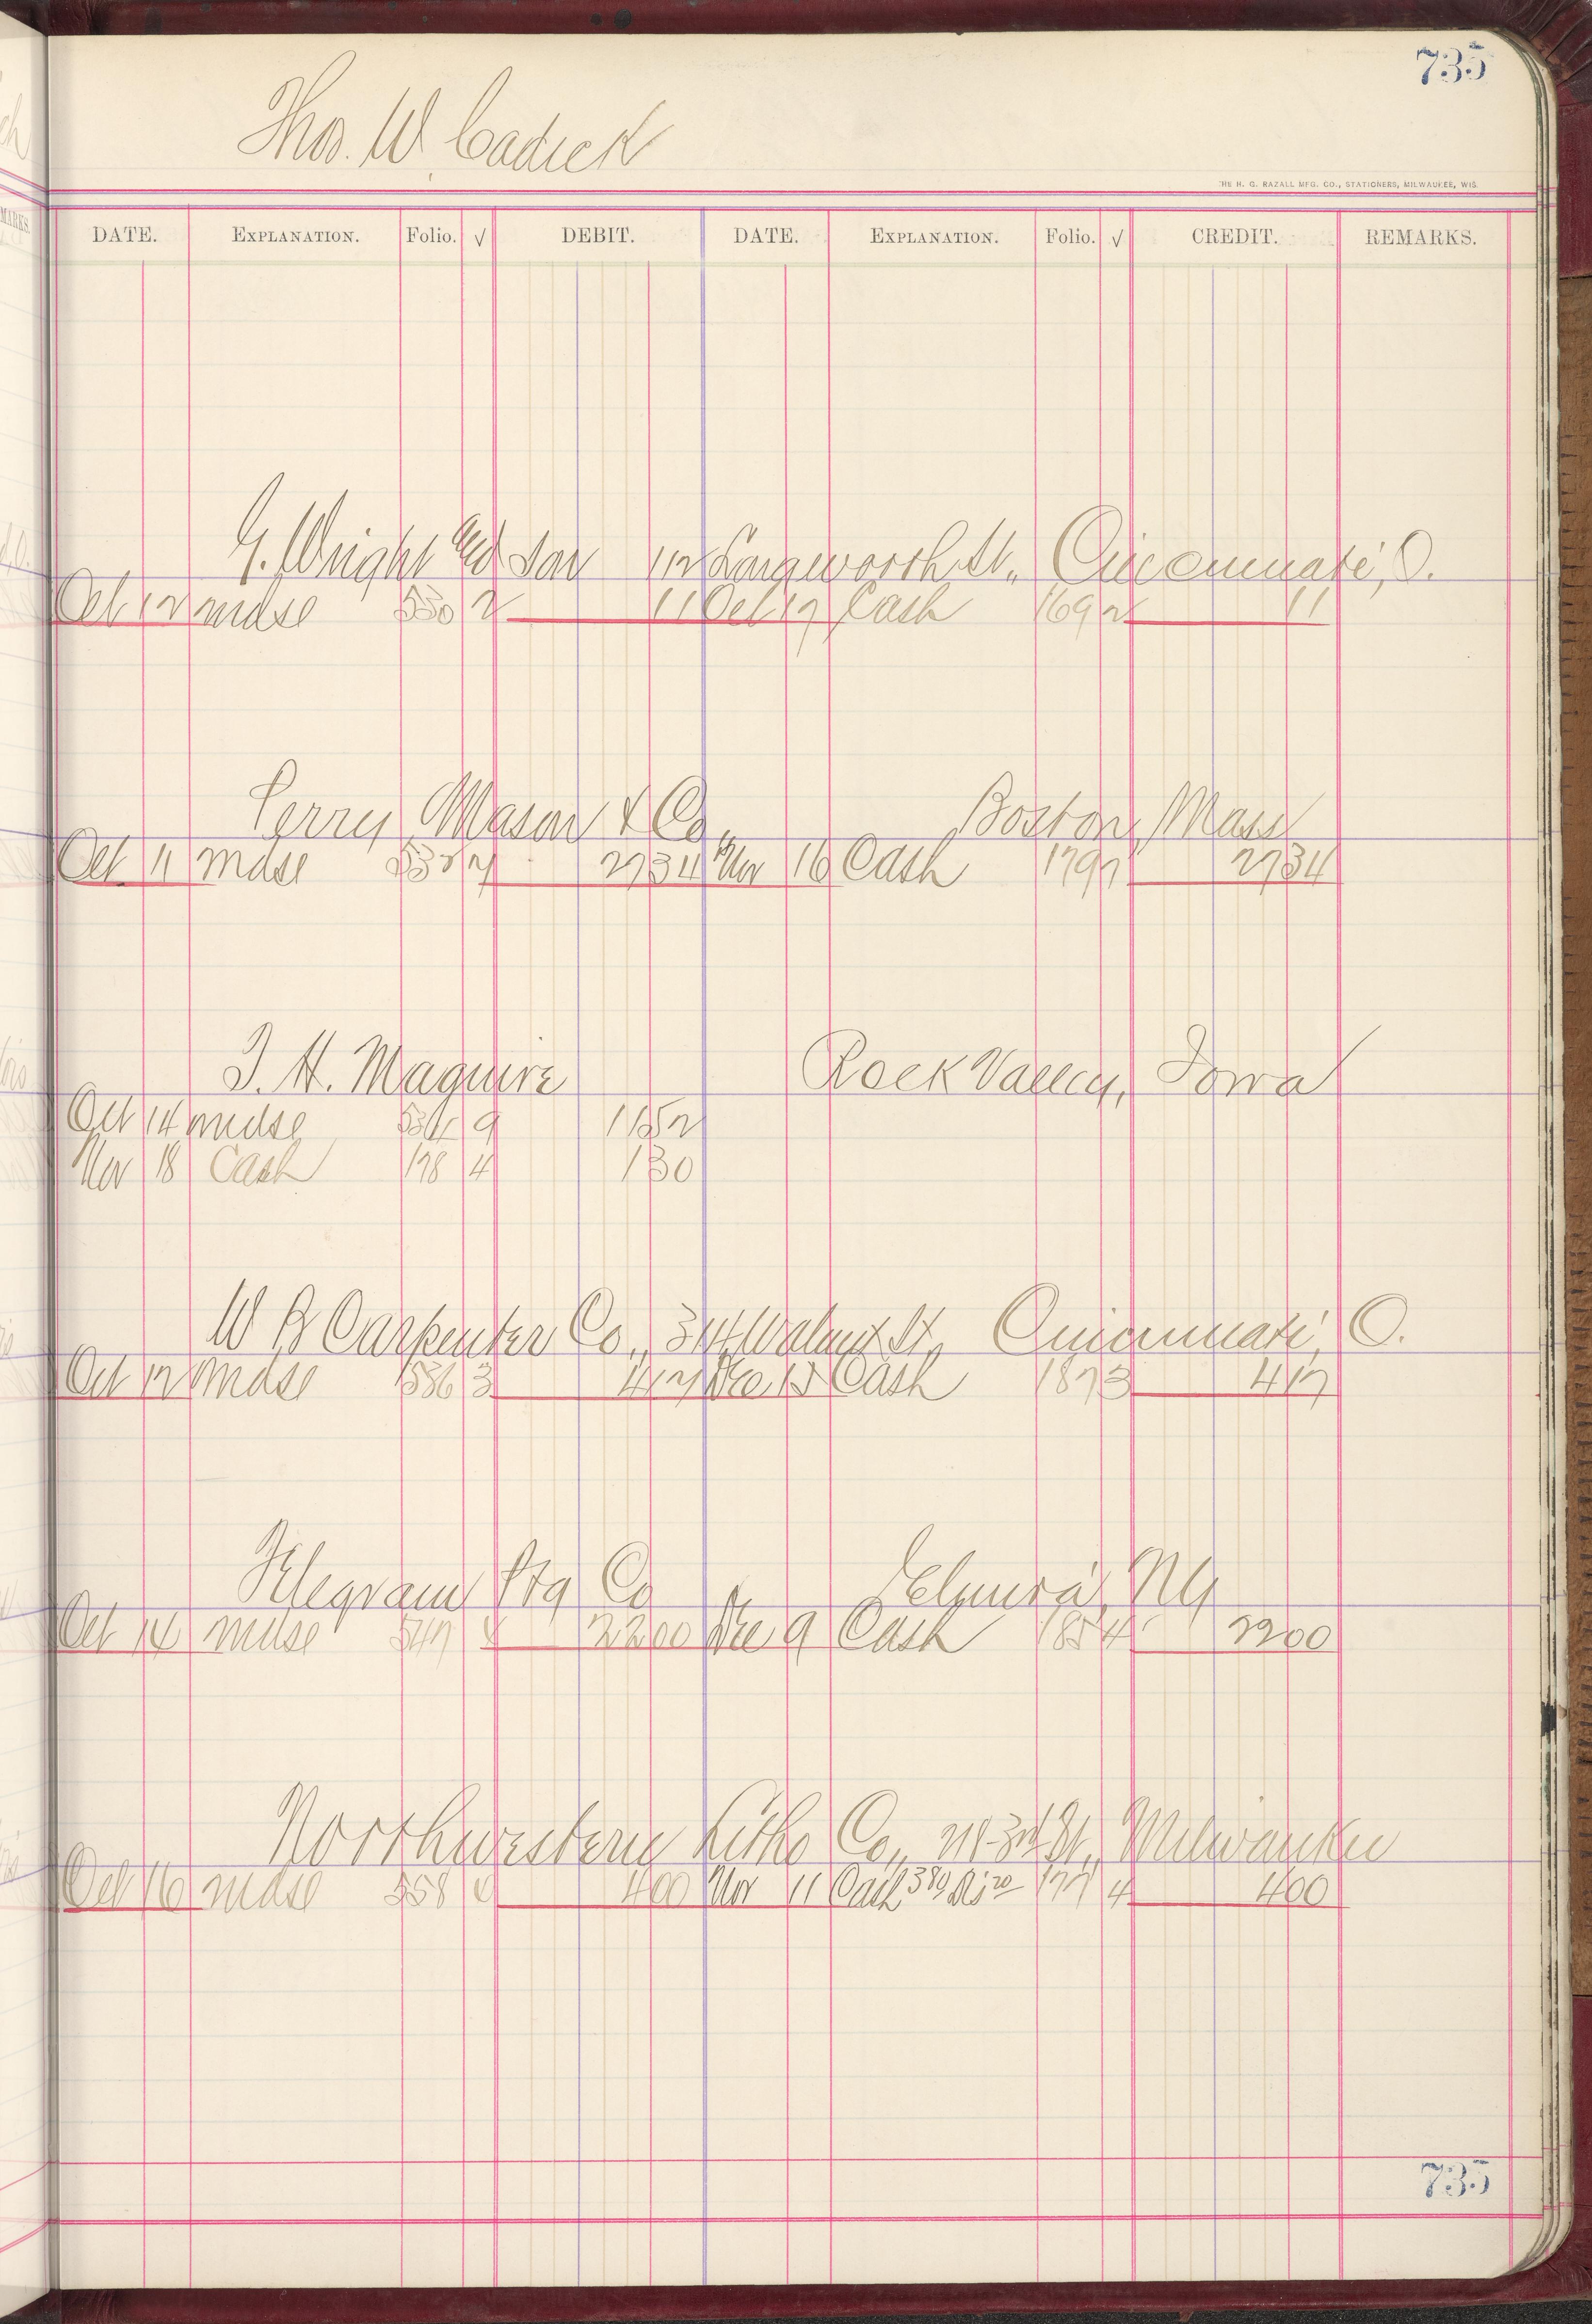 735
Thos. W. Cadick
THE H. G. RAZALL MFG. CO., STATIONERS, MILWAUKEE, WIS.
DATE. EXPLANATION. Folio. √ DEBIT. DATE. EXPLANATION. Folio. √ CREDIT. REMARKS.
G. Wright Longworth St., Cincinnati, O.
Oct 12 mdse 550 2 11 Oct 17 Cash 169 2 11
Perry Mason & Co., Boston, Mass
Oct 11 mdse 7 2734 Nov 16 Cash 179 2734
T. H. Maguire Rock Valley, Iowa
Oct 14 mdse 534 9 1152
Nov 18 Cash 178 4 130
W B Carpenter Co., Walnut St. Cincinnati, O.
Oct 12 mdse 536 3 417 Dec 15 Cash 187 3 417
Telegram Ptg Co Elmira, NY
Oct 14 mdse 547 2200 Dec 9 Cash 185 4 2200
Northwestern Litho Co., St., Milwaukee
Oct 16 mdse 558 400 Nov 11 Cash 380 Dis 20 177 4 400
735